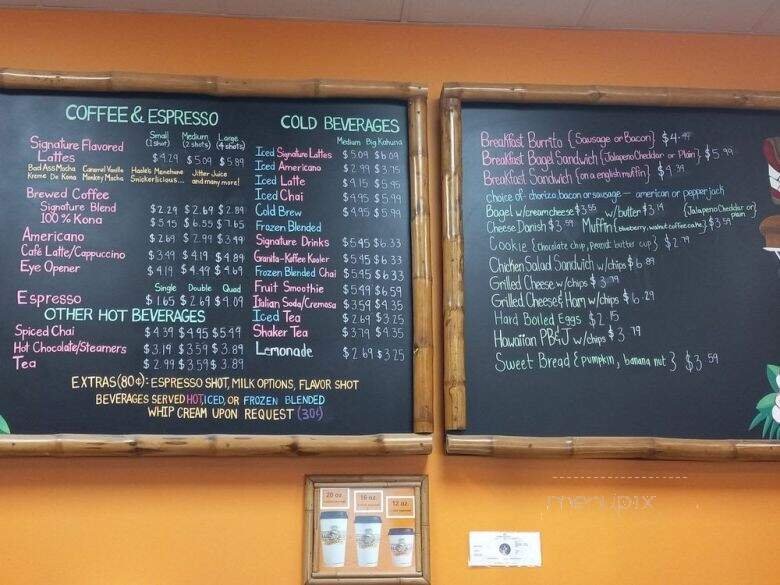 COFFEE & ESPRESSO
Small Medium Large
(1 shot) (2 shots) (4 shots)
Signature Flavored
Lattes $4.29 $5.09 $5.89
Bad Ass Mocha Caramel Vanilla Jitter Juice
Kreme De Kona Monkey Mocha Snickerlicious... and many more!
Brewed Coffee
Signature Blend $2.29 $2.69 $2.89
100% Kona $5.45 $6.55 $7.65
Americano $2.69 $2.99 $3.49
Café Latte/Cappuccino $3.49 $4.19 $4.89
Eye Opener $4.19 $4.49 $4.69
Single Double Quad
Espresso $1.65 $2.69 $4.09
OTHER HOT BEVERAGES
Spiced Chai $4.39 $4.95 $5.49
Hot Chocolate/Steamers $3.19 $3.59 $3.89
Tea $2.99 $3.59 $3.89
COLD BEVERAGES
Medium Big Kahuna
Iced Signature Lattes $5.09 $6.09
Iced Americano $2.99 $3.75
Iced Latte $4.15 $5.95
Iced Chai $4.95 $5.99
Cold Brew $4.95 $5.99
Frozen Blended
Signature Drinks $5.45 $6.33
Granilla-Koffee Kooler $5.45 $6.33
Frozen Blended Chai $5.45 $6.33
Fruit Smoothie $5.49 $6.59
Italian Soda/Cremosa $3.59 $4.35
Iced Tea $2.69 $3.25
Shaker Tea $3.79 $4.35
Lemonade $2.69 $3.25
EXTRAS (80¢): ESPRESSO SHOT, MILK OPTIONS, FLAVOR SHOT
BEVERAGES SERVED HOT, ICED, OR FROZEN BLENDED
WHIP CREAM UPON REQUEST (30¢)
Breakfast Burrito {Sausage or Bacon} $4.49
Breakfast Bagel Sandwich {Jalapeno Cheddar or Plain} $5.99
Breakfast Sandwich {on a english muffin} $4.39
choice of- chorizo, bacon or sausage - american or pepperjack
Bagel w/creamcheese $3.55 w/butter $3.19 {Jalapeno Cheddar or plain}
Cheese Danish $3.59 Muffin {blueberry, walnut coffee cake} $3.59
Cookie {chocolate chip, peanut butter cup} $2.79
Chicken Salad Sandwich w/chips $6.89
Grilled Cheese w/chips $3.79
Grilled Cheese & Ham w/chips $6.29
Hard Boiled Eggs $2.15
Hawaiian PB&J w/chips $3.79
Sweet Bread {pumpkin, banana nut} $3.59
20 oz. 16 oz. 12 oz.
menupix